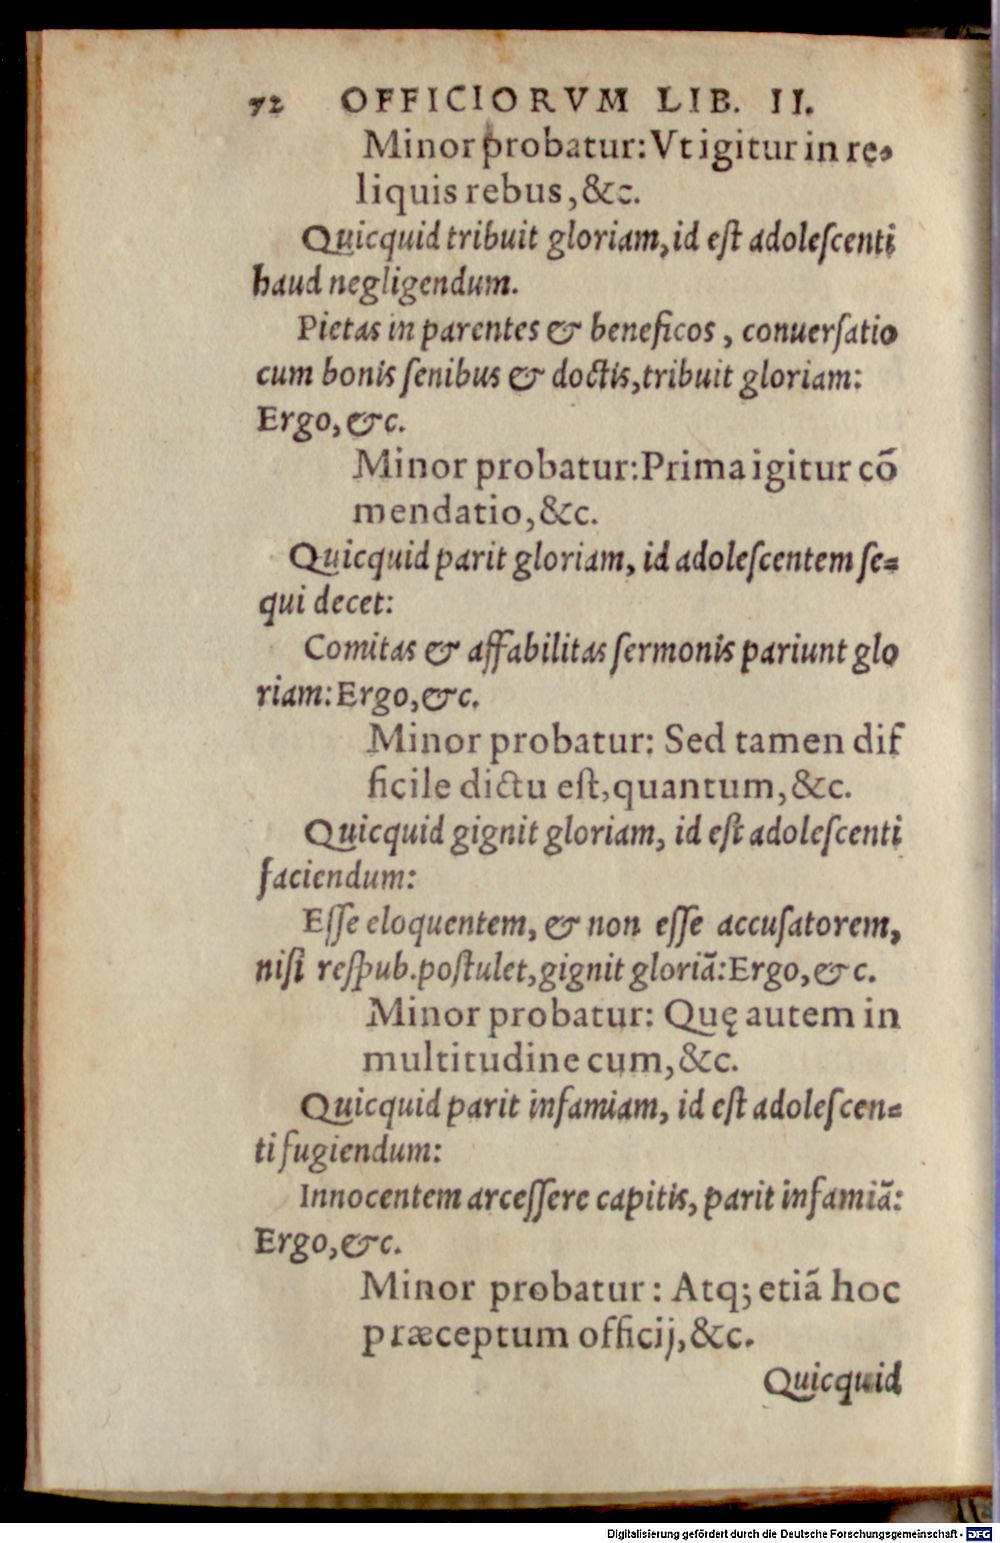 72 OFFICIORVM LIB. II.
Minor probatur: Vt igitur in re-
liquis rebus, &c.
Quicquid tribuit gloriam, id eſt adoleſcenti
haud negligendum.
Pietas in parentes & beneficos, conuerſatio
cum bonis ſenibus & doctis, tribuit gloriam:
Ergo, &c.
Minor probatur: Prima igitur cõ
mendatio, &c.
Quicquid parit gloriam, id adoleſcentem ſe-
qui decet:
Comitas & affabilitas ſermonis pariunt glo
riam: Ergo, &c.
Minor probatur: Sed tamen dif
ficile dictu eſt, quantum, &c.
Quicquid gignit gloriam, id eſt adoleſcenti
faciendum:
Eſſe eloquentem, & non eſſe accuſatorem,
niſi reſpub. poſtulet, gignit gloriã: Ergo, &c.
Minor probatur: Quę autem in
multitudine cum, &c.
Quicquid parit infamiam, id eſt adoleſcen-
ti fugiendum:
Innocentem arceſſere capitis, parit infamiã:
Ergo, &c.
Minor probatur: Atq; etiã hoc
præceptum officij, &c.
Quicquid
Digitalisierung gefördert durch die Deutsche Forschungsgemeinschaft - DFG